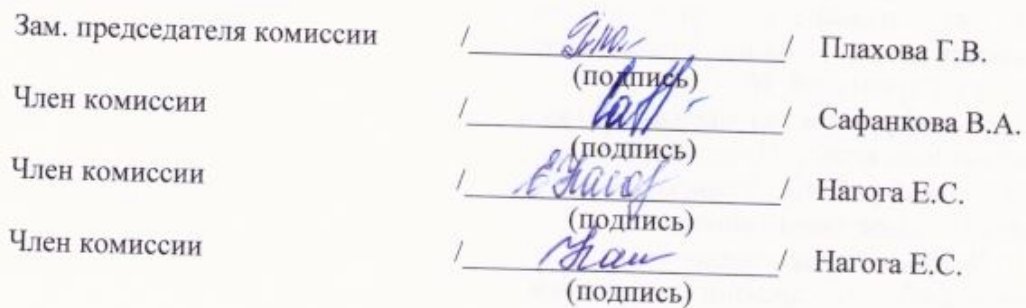 Зам. председателя комиссии / / Плахова Г.В.
(подпись)
Член комиссии / / Сафанкова В.А.
(подпись)
Член комиссии / / Нагога Е.С.
(подпись)
Член комиссии / / Нагога Е.С.
(подпись)